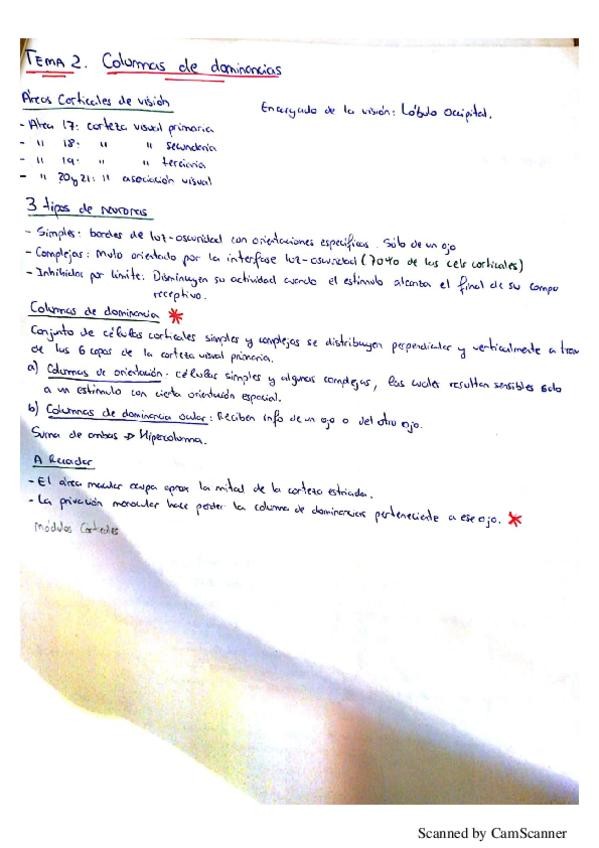 TEMA 2. Columnas de dominancias
Áreas Corticales de visión
Encargado de la visión: Lóbulo Occipital.
- Área 17: corteza visual primaria
- " 18: " " secundaria
- " 19: " " terciaria
- " 20y21: " asociación visual
3 tipos de neuronas
- Simples: bordes de luz-oscuridad con orientaciones específicas. Sólo de un ojo
- Complejas: orientado por la interfase luz-oscuridad (70% de las cels corticales)
- Inhibidas por límite: Disminuyen su actividad cuando el estímulo alcanza el final de su campo
receptivo.
Columnas de dominancia *
Conjunto de células corticales simples y complejas se distribuyen perpendicular y verticalmente a
de las 6 capas de la corteza visual primaria.
a) Columnas de orientación. células simples y algunas complejas, las cuales resultan sensibles sólo
a un estímulo con cierta orientación espacial.
b) Columnas de dominancia ocular: Reciben info de un ojo o del otro ojo.
Suma de ambas → Hipercolumna.
A Recordar
- El área macular ocupa aprox la mitad de la corteza estriada.
- La privación monocular hace perder la columna de dominancias perteneciente a ese ojo. *
Módulos Corticales
Scanned by CamScanner